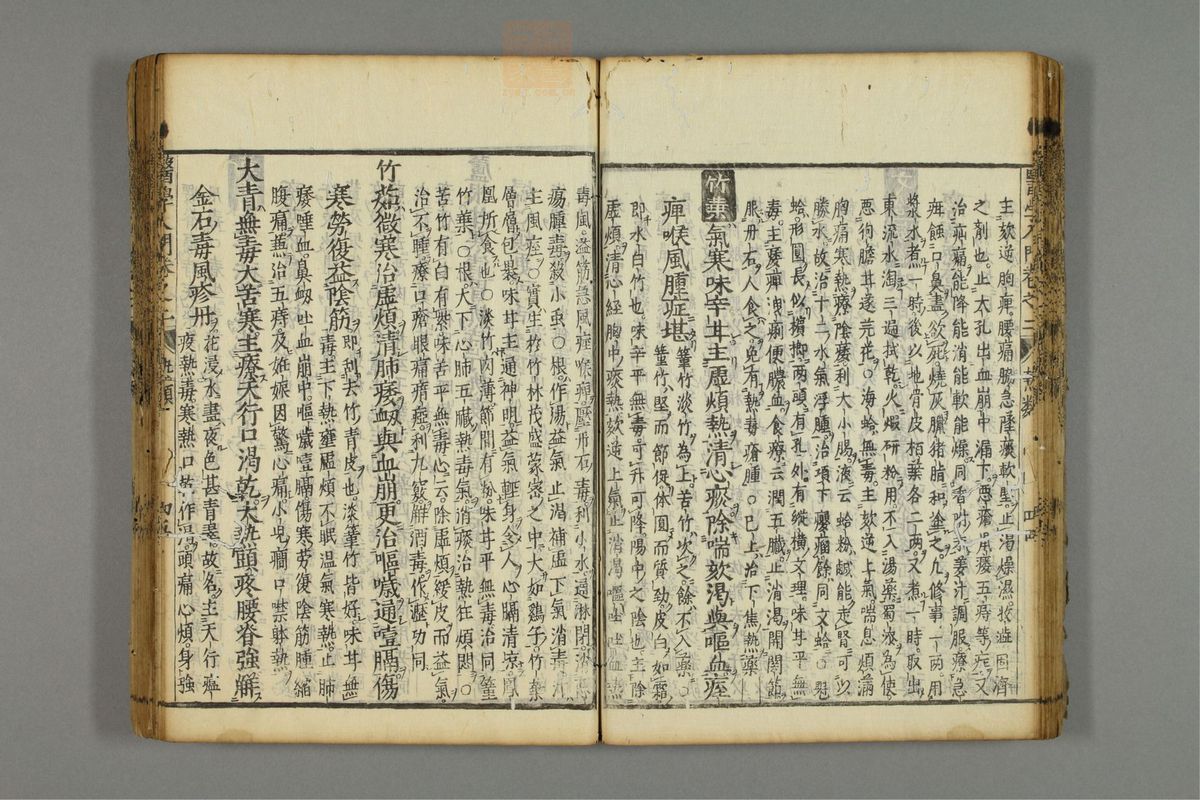 主欬逆胸痺腰痛脇急陰痿軟堅止渴燥濕收澁固濟
之劑也止大孔出血崩中漏下惡瘡鼠瘻五痔等症又
治疝痛能降能消能軟能燥同香附末姜汁調服療急
疳蝕口鼻盡欲死燒灰臘猪脂和塗之凡修事一兩用
漿水煮一時後以地骨皮柏葉各二兩又煮一時取出
東流水淘三遍拭乾火煅研粉用不入湯藥蜀漆為使
惡狗膽甘遂芫花○海蛤無毒主欬逆上氣喘息煩滿
胸痛寒熱療陰痿利大小腸液云蛤粉鹹能走腎可以
勝水故治十二水氣浮腫治項下癭瘤餘同文蛤○
蛤形圓長以檳榔兩頭有孔外有縱橫文理味甘平無
毒主痿痺洩痢便膿血食療云潤五臟止消渴開關節
服丹石人食之免有熱毒瘡腫○巳上治下焦熱藥
竹葉氣寒味辛甘主虛煩熱清心痰除喘欬渴與嘔血
痺喉風腫症堪 䈽竹淡竹為上苦竹次之餘不入藥○
䈽竹堅而節促体圓而質勁皮白如霜
即水白竹也味辛平無毒可升可降陽中之陰也主除
虛煩清心經胸中痰熱欬逆上氣止消渴嘔吐吐血熱
毒風溢筋急風痙喉痺壓丹石毒利小水通淋閉消
瘍腫毒殺小虫○根作湯益氣止渴補虛下氣消毒汁
主風痙○實生於竹林茂盛蒙密之中大如鷄子竹葉
層層包裹味甘主通神明益氣輕身食人心膈清凉
凰所食也○淡竹肉薄節間有粉味甘平無毒治同䈽
竹葉○根大下心肺五臟熱毒氣消痰治熱狂煩悶○
苦竹有白有紫味苦平無毒心云除虛煩緩皮而益氣
治不睡療口瘡眼痛瘖瘂利九竅解酒毒作瀝功同
竹茹微寒治虛煩清肺痿衂與血崩更治嘔噦通噎膈傷
寒勞復益陰筋 即刮去竹青皮也淡䈽竹皆好味甘無
毒主下熱壅虛煩不眠温氣寒熱止肺
痿唾血鼻衂吐血崩中嘔噦噎膈傷寒勞復陰筋腫縮
腹痛兼治五痔及妊娠因驚心痛小兒癎口噤躰熱
大青無毒大苦寒主療天行口渴乾大熱頭疼腰脊強解
金石毒風疹丹 花浸水盡夜色甚青翠故名主天行瘟
疫熱毒寒熱口乾作渴頭痛心煩身強